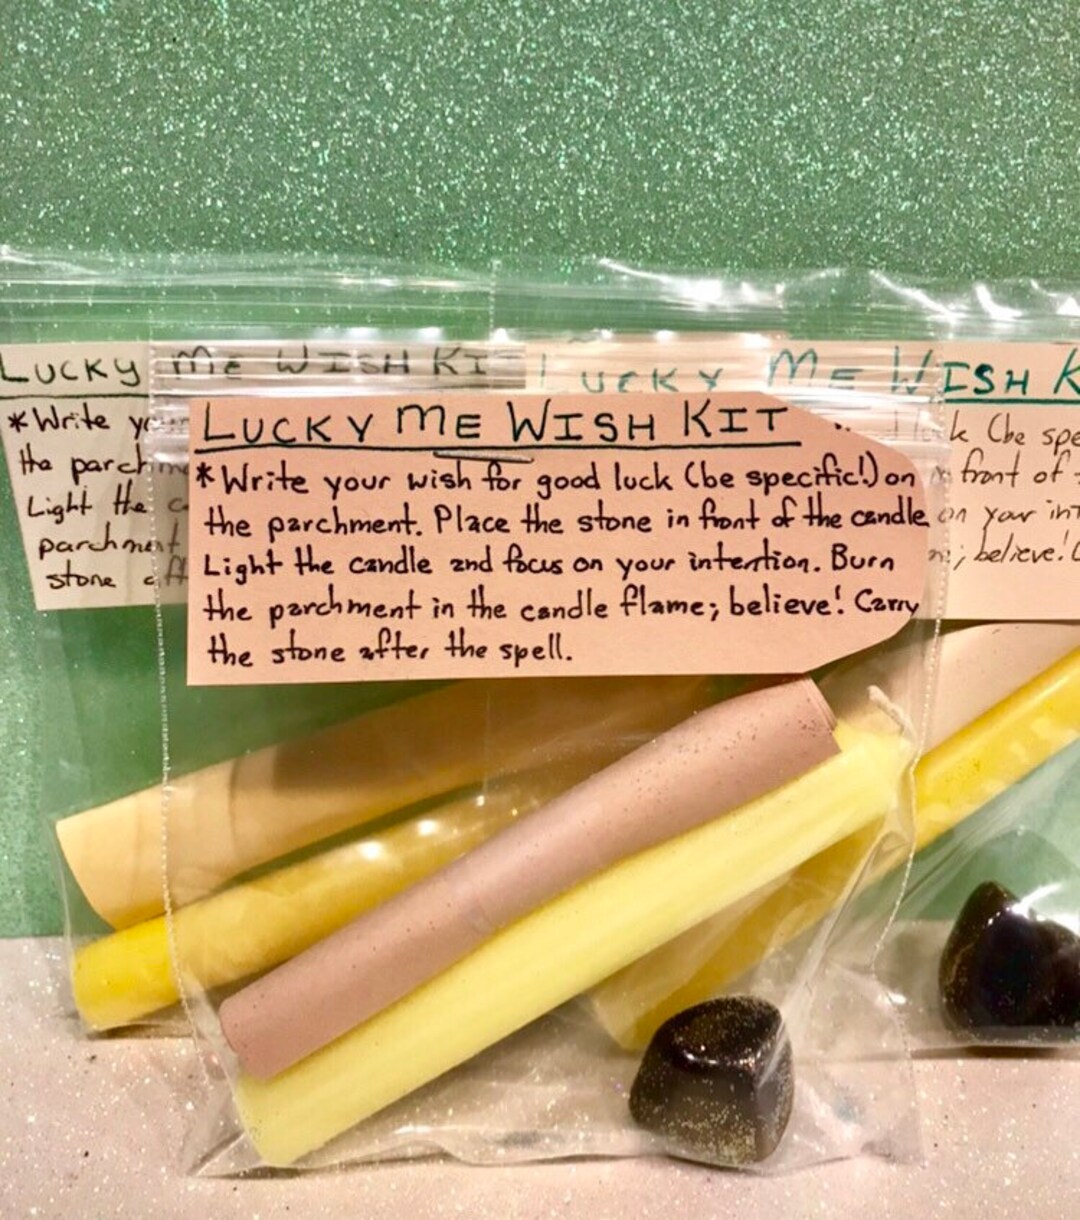 LUCKY ME WISH KIT
*Write your wish for good luck (be specific!) on
the parchment. Place the stone in front of the candle
Light the candle and focus on your intention. Burn
the parchment in the candle flame; believe! Carry
the stone after the spell.
LUCKY ME WISH KIT
*Write
the
Light the
parchment
stone
LUCKY ME WISH
(be
front of
on your
believe!